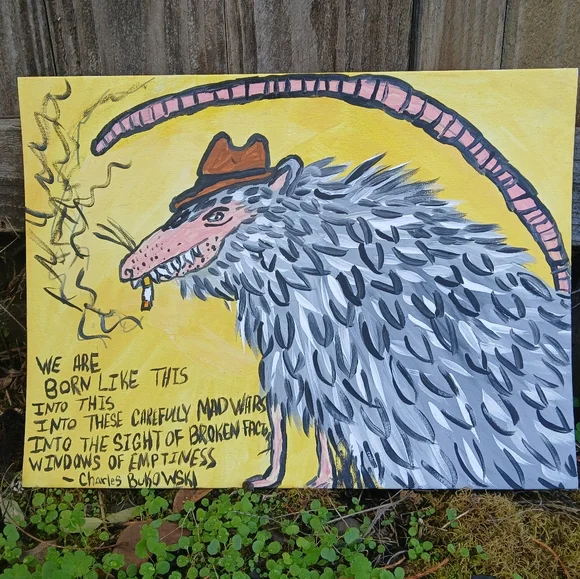 WE ARE
BORN LIKE THIS
INTO THIS
INTO THESE CAREFULLY MAD WARS
INTO THE SIGHT OF BROKEN FACT
WINDOWS OF EMPTINESS
- Charles BUKOWSKI